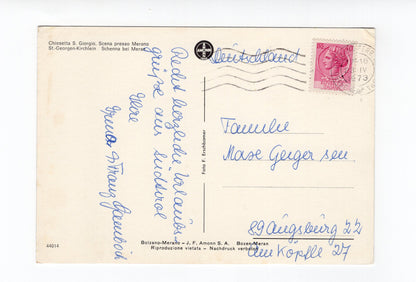 Chiesetta S. Giorgio, Scena presso Merano
St.-Georgen-Kirchlein Schenna bei Meran
Recht herzliche Urlaubs-
grüße aus Südtirol
Ihre
Franz
44014
Foto F. Erschbaumer
Bolzano-Merano – J. F. Amonn S. A. Bozen-Meran
Riproduzione vietata – Nachdruck verboten
Deutschland
Familie
Max Geiger sen
89 Augsburg 22
Am Köpfle 27